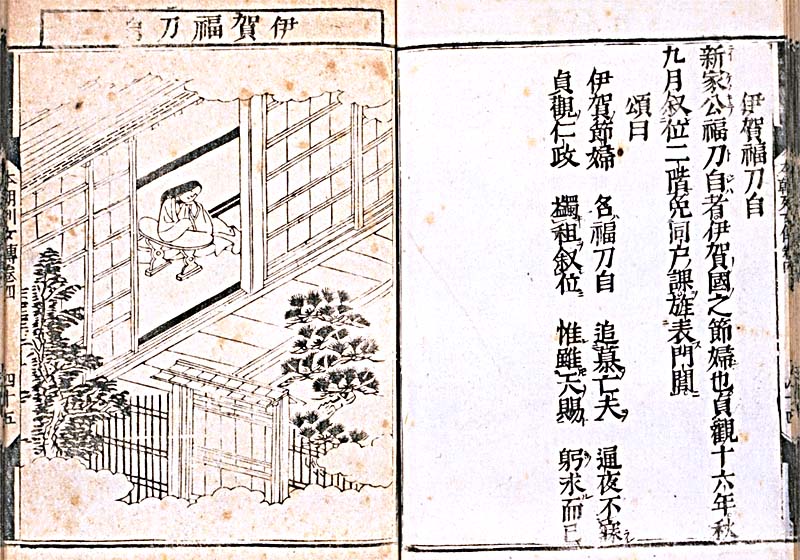 伊賀福刀自
新家公福刀自者伊賀國之節婦也貞觀十六年秋
九月叙位二階免同戸課旌表門閭
頌曰
伊賀節婦 名福刀自 追慕亡夫 通夜不寐
貞觀仁政 蠲租叙位 惟雖天賜 躬求而已
伊賀福刀自
本朝列女傳卷四 四十五